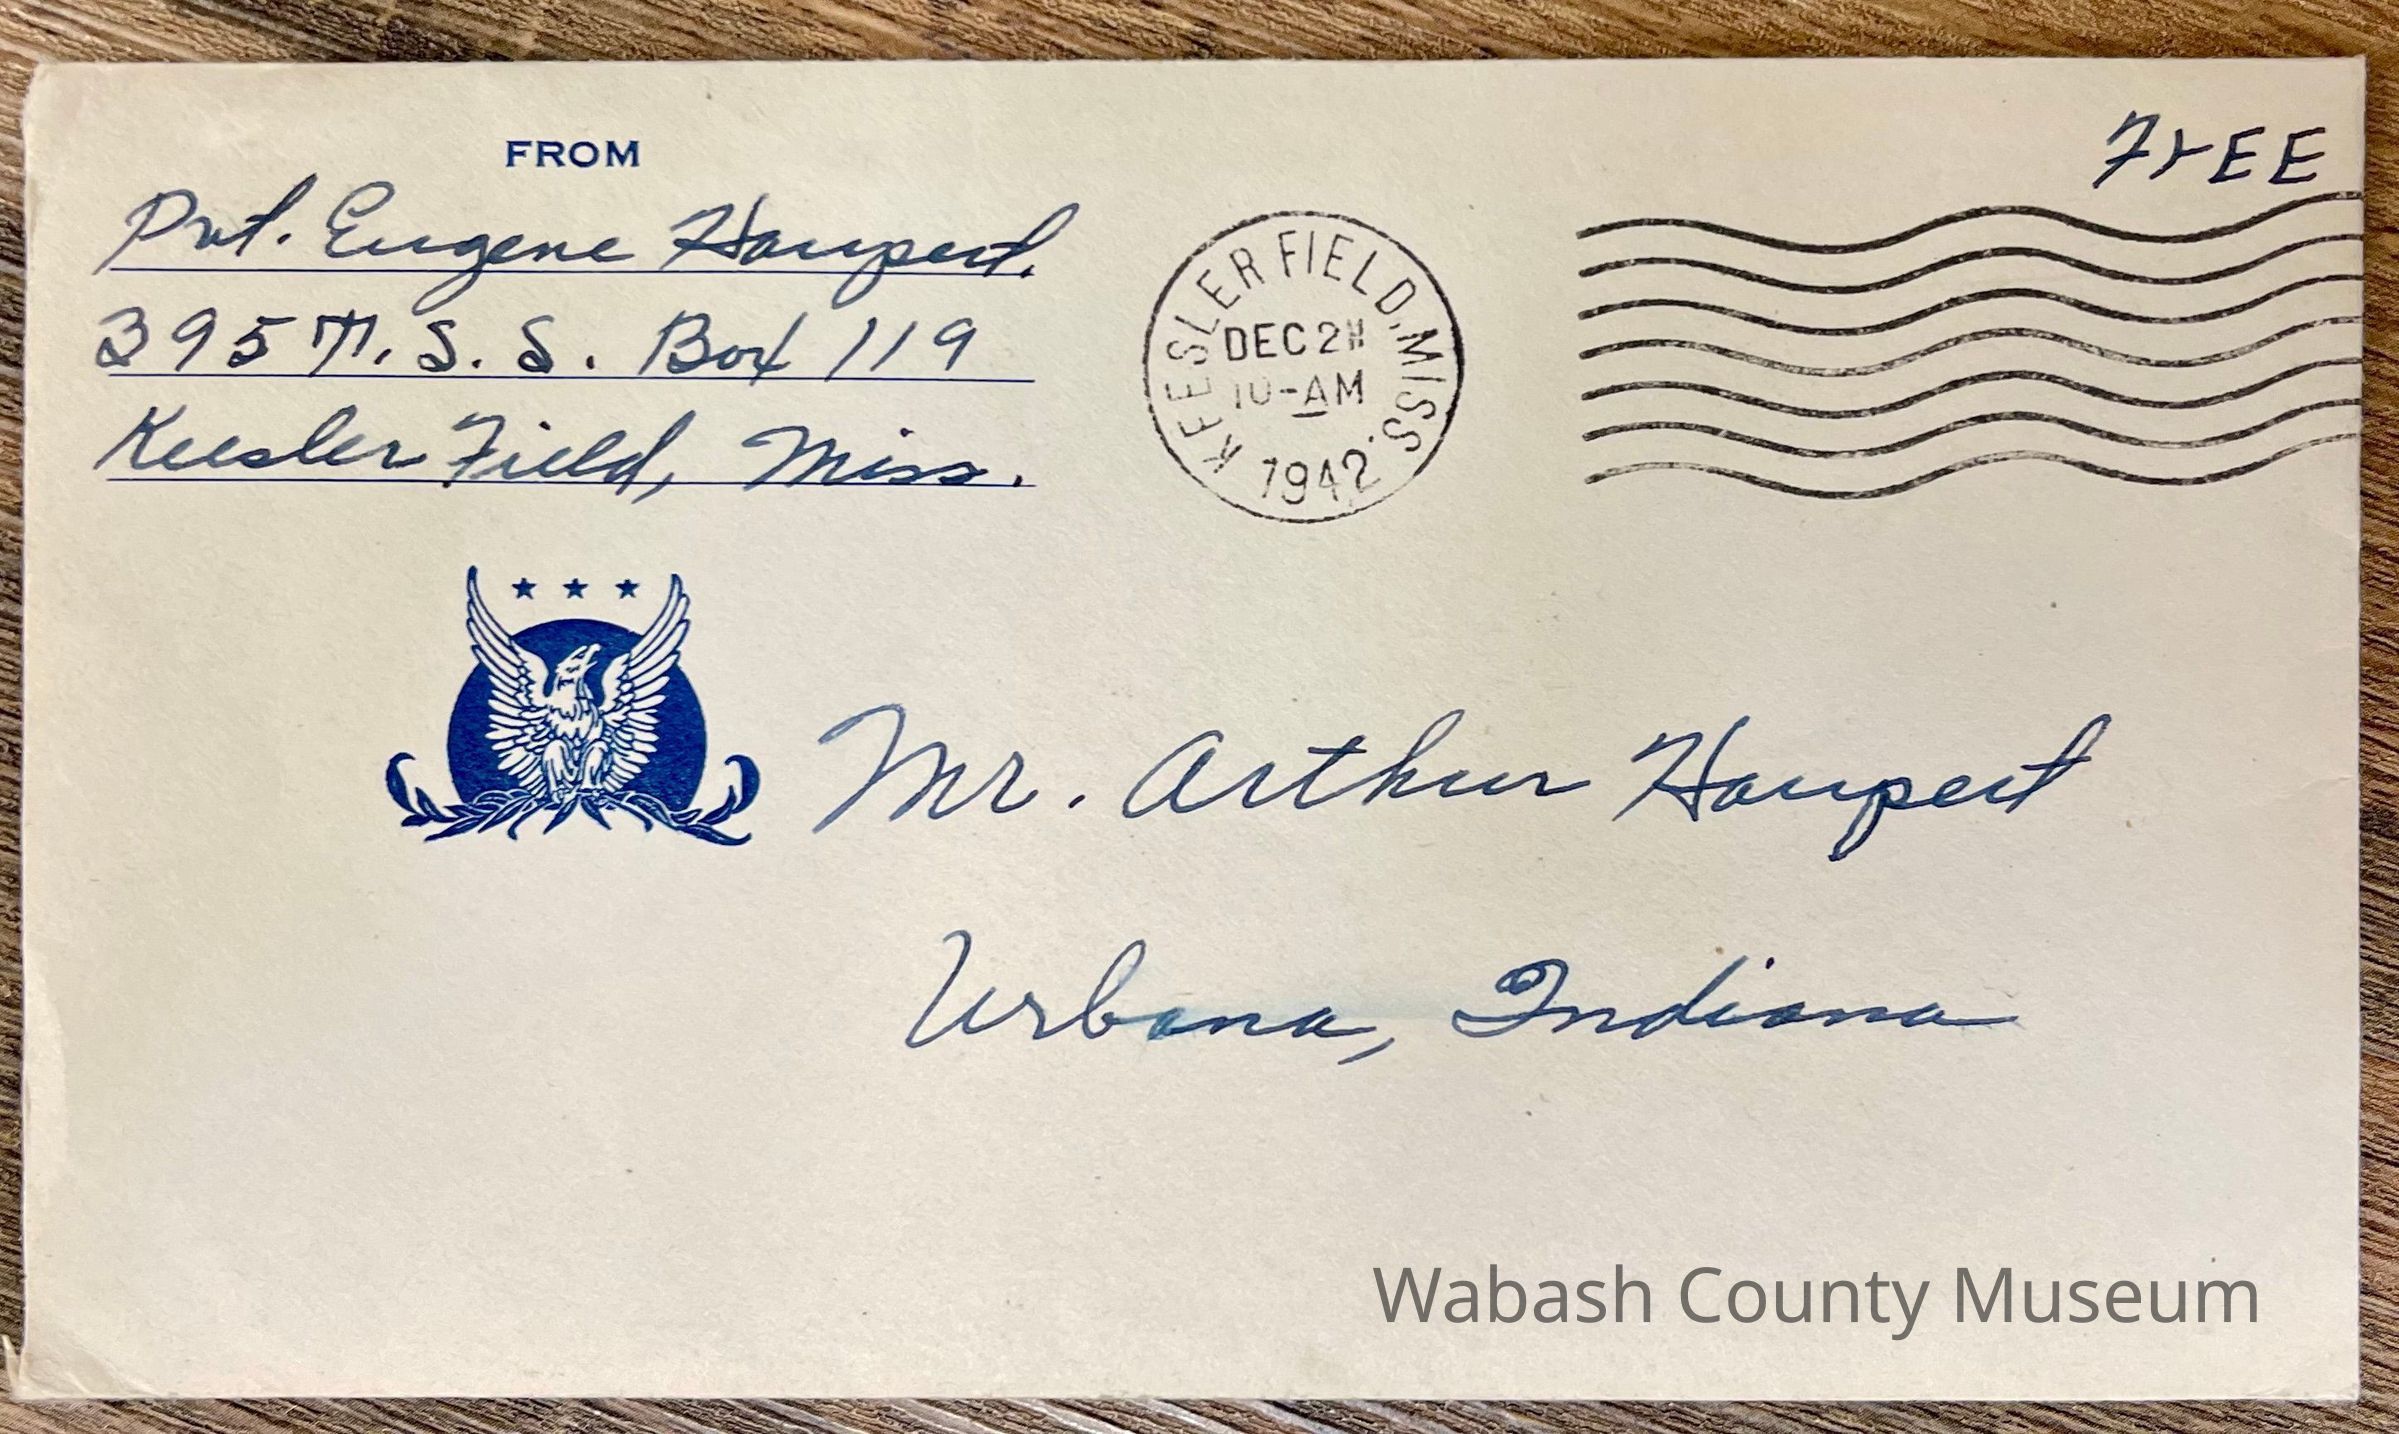 FROM
Pvt. Eugene Haupert.
395 T. S. S. Box 119
Keesler Field, Miss.
FrEE
KEESLER FIELD, MISS.
DEC
10-AM
1942
Mr. Arthur Haupert
Urbana, Indiana
Wabash County Museum